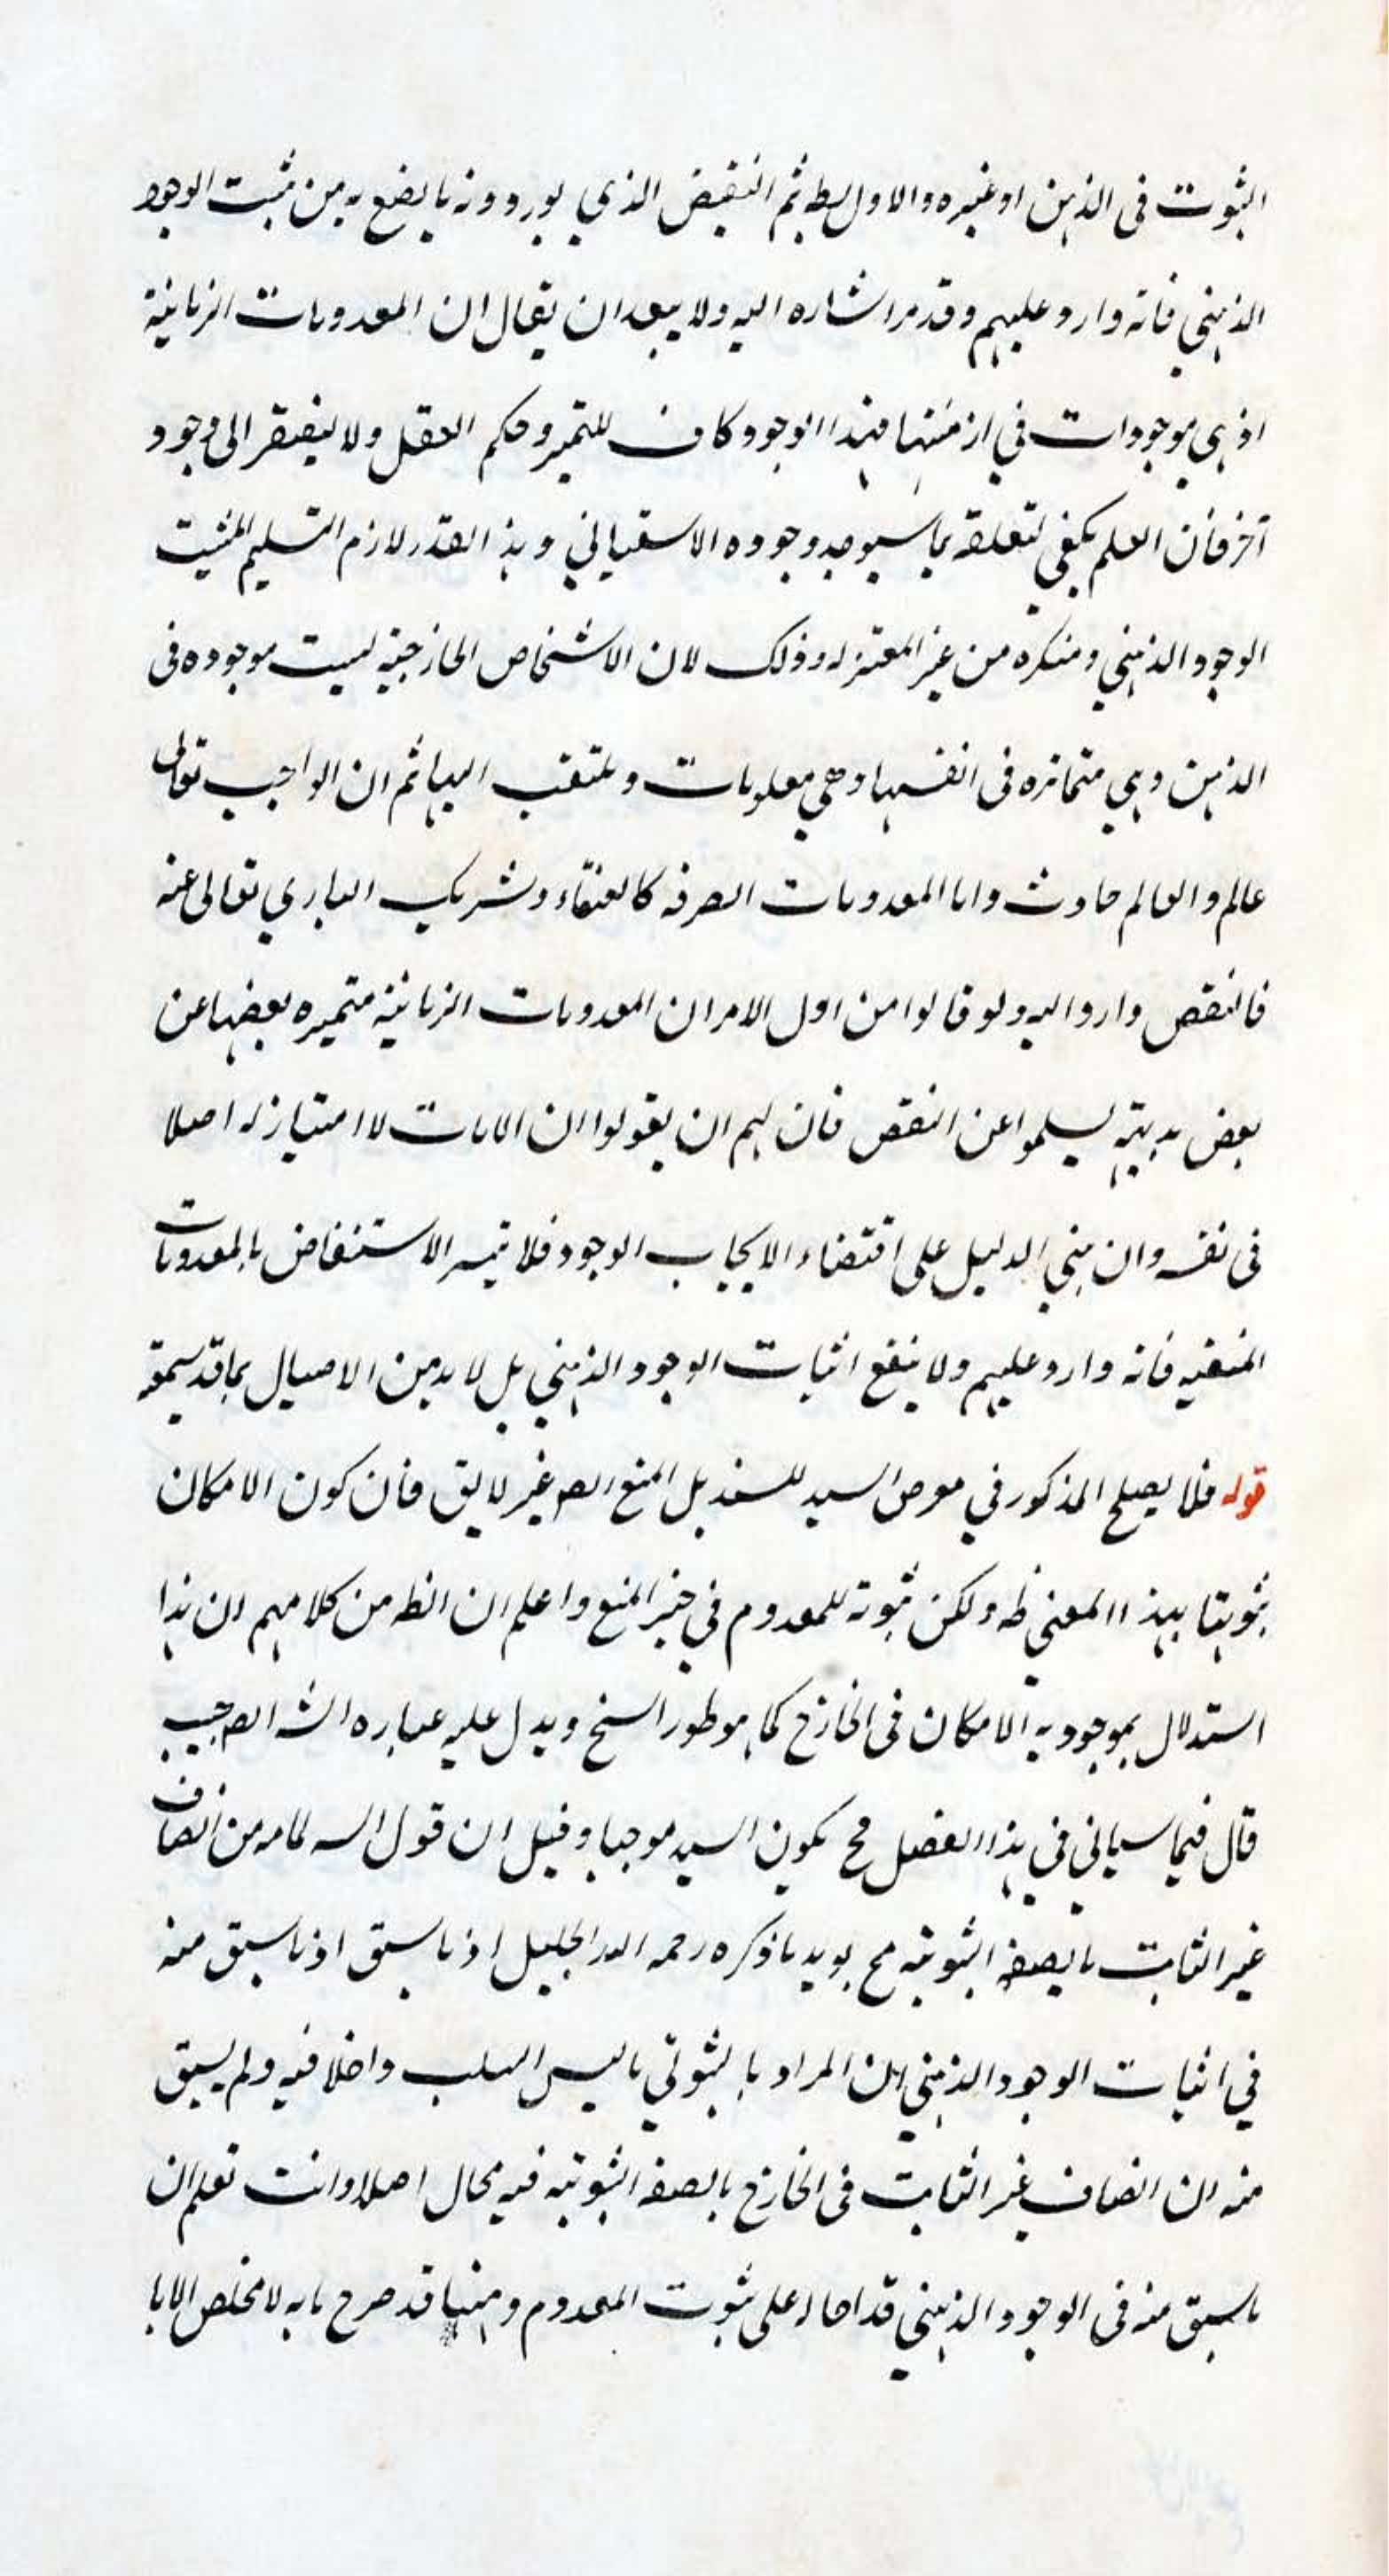 الثبوت فى الذهن او غيره والاول بط ثم النقيض الذي يوردونه ما يضع به من مثبت الوجود
الذهني فانه وارد عليهم وقد مر اشاره اليه ولا يبعد ان يقال ان المعدومات الزمانية
اذ هي موجودات في ازمنتها فهذا الوجود كاف للتميز وحكم العقل ولا يفتقر الى وجود
آخر فان العلم يكفي لتعلقه بما سيوجد وجوده الاستقبالي وهذا القدر لازم التسليم لمثبت
الوجود الذهني ومنكره من غير المعتزله وذلك لان الاشخاص الخارجية ليست موجوده فى
الذهن وهي متمايزه فى انفسها وهي معلومات وملتفت اليها ثم ان الواجب تعالى
عالم والعالم حادث واما المعدومات الصرفه كالعنقاء وشريك الباري تعالى عنه
فالنقص وارد اليه ولو قالوا من اول الامر ان المعدومات الزمانية متميزه بعضها عن
بعض بديهة يسلموا عن النقص فان لهم ان يقولوا ان الامات لا امتياز له اصلا
فى نفسه وان بني الدليل على اقتضاء الايجاب الوجود فلا تيسر الاستنقاض بالمعدومات
المنفيه فانه وارد عليهم ولا ينفع اثبات الوجود الذهني بل لا بد من الاصيال بما قد سمعته
قوله فلا يصلح المذكور في معرض السيد للسند بل المنع ايضا غير لايق فان كون الامكان
ثبوتيا بهذا المعنى ظه ولكن ثبوته للمعدوم في حيز المنع واعلم ان الظه من كلامهم ان هذا
استدلال بموجوديه الامكان فى الخارج كما هو طور الشيخ ويدل عليه عباره الشه ايضا حيث
قال فيما سيأتي في هذا الفصل مح يكون السيد موجبا وقيل ان قول الشه لما مر من اتصاف
غير الثابت بالصفه الثبوتيه مح يويد ما ذكره رحمه الله الجليل اذ ما سبق اذ ما سبق منه
في اثبات الوجود الذهني ان المراد بالثبوتي ما ليس السلب داخلا فيه ولم يسبق
منه ان اتصاف غير الثابت فى الخارج بالصفه الثبوتيه فيه محال اصلا وانت تعلم ان
ما سبق منه فى الوجود الذهني قد احاله على ثبوت المعدوم وههنا قد صرح بانه لا مخلص الا با